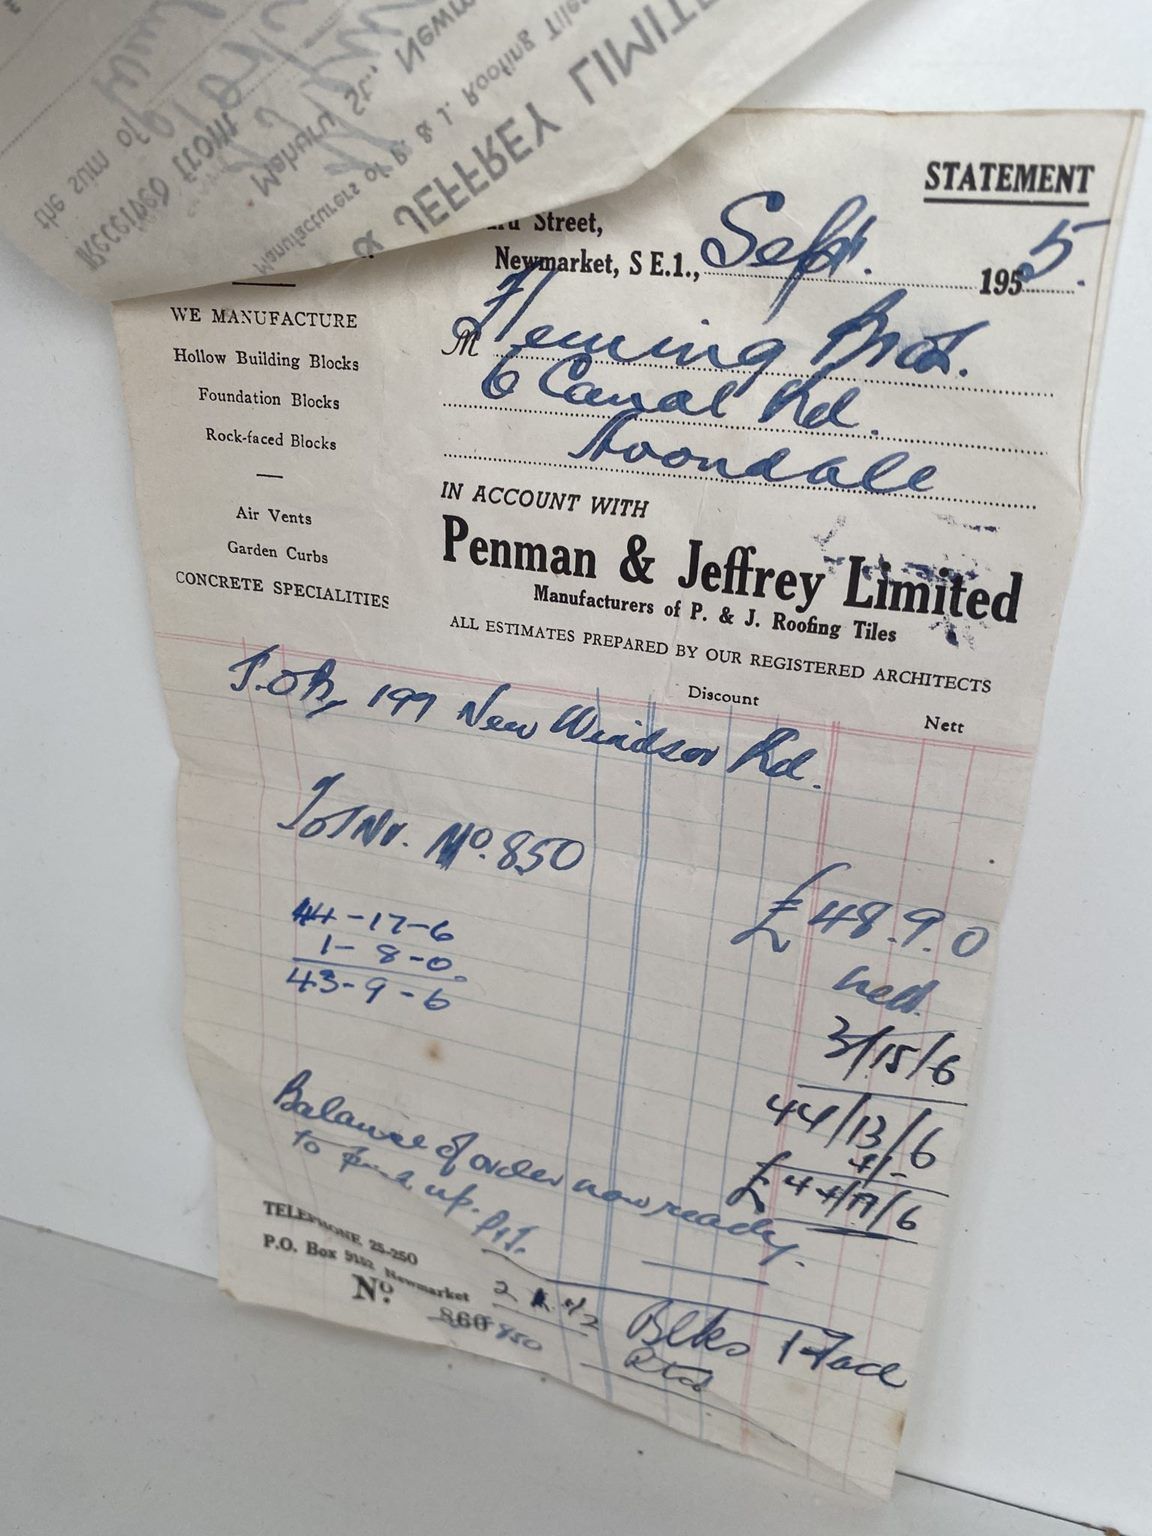 the sum of
Received from
Mahuru St., Newm
Manufacturers of P. & J. Roofing Tiles
& JEFFREY LIMITE
STATEMENT
Street,
Newmarket, S E.1., Sept. 1955.
M Fleming Bros.
6 Canal Rd.
Avondale
WE MANUFACTURE
Hollow Building Blocks
Foundation Blocks
Rock-faced Blocks
Air Vents
Garden Curbs
CONCRETE SPECIALITIES
IN ACCOUNT WITH
Penman & Jeffrey Limited
Manufacturers of P. & J. Roofing Tiles
ALL ESTIMATES PREPARED BY OUR REGISTERED ARCHITECTS
Discount Nett
J.O.B. 199 New Windsor Rd.
To Inv. No. 850
£48.9.0
nett.
44-17-6
1-8-0.
43-9-6
3/15/6
44/13/6
4/-
£44/17/6
Balance of order now ready.
to up.
TELEPHONE 25-250
P.O. Box 9152 Newmarket
No. 860 850
Blks 1 Face